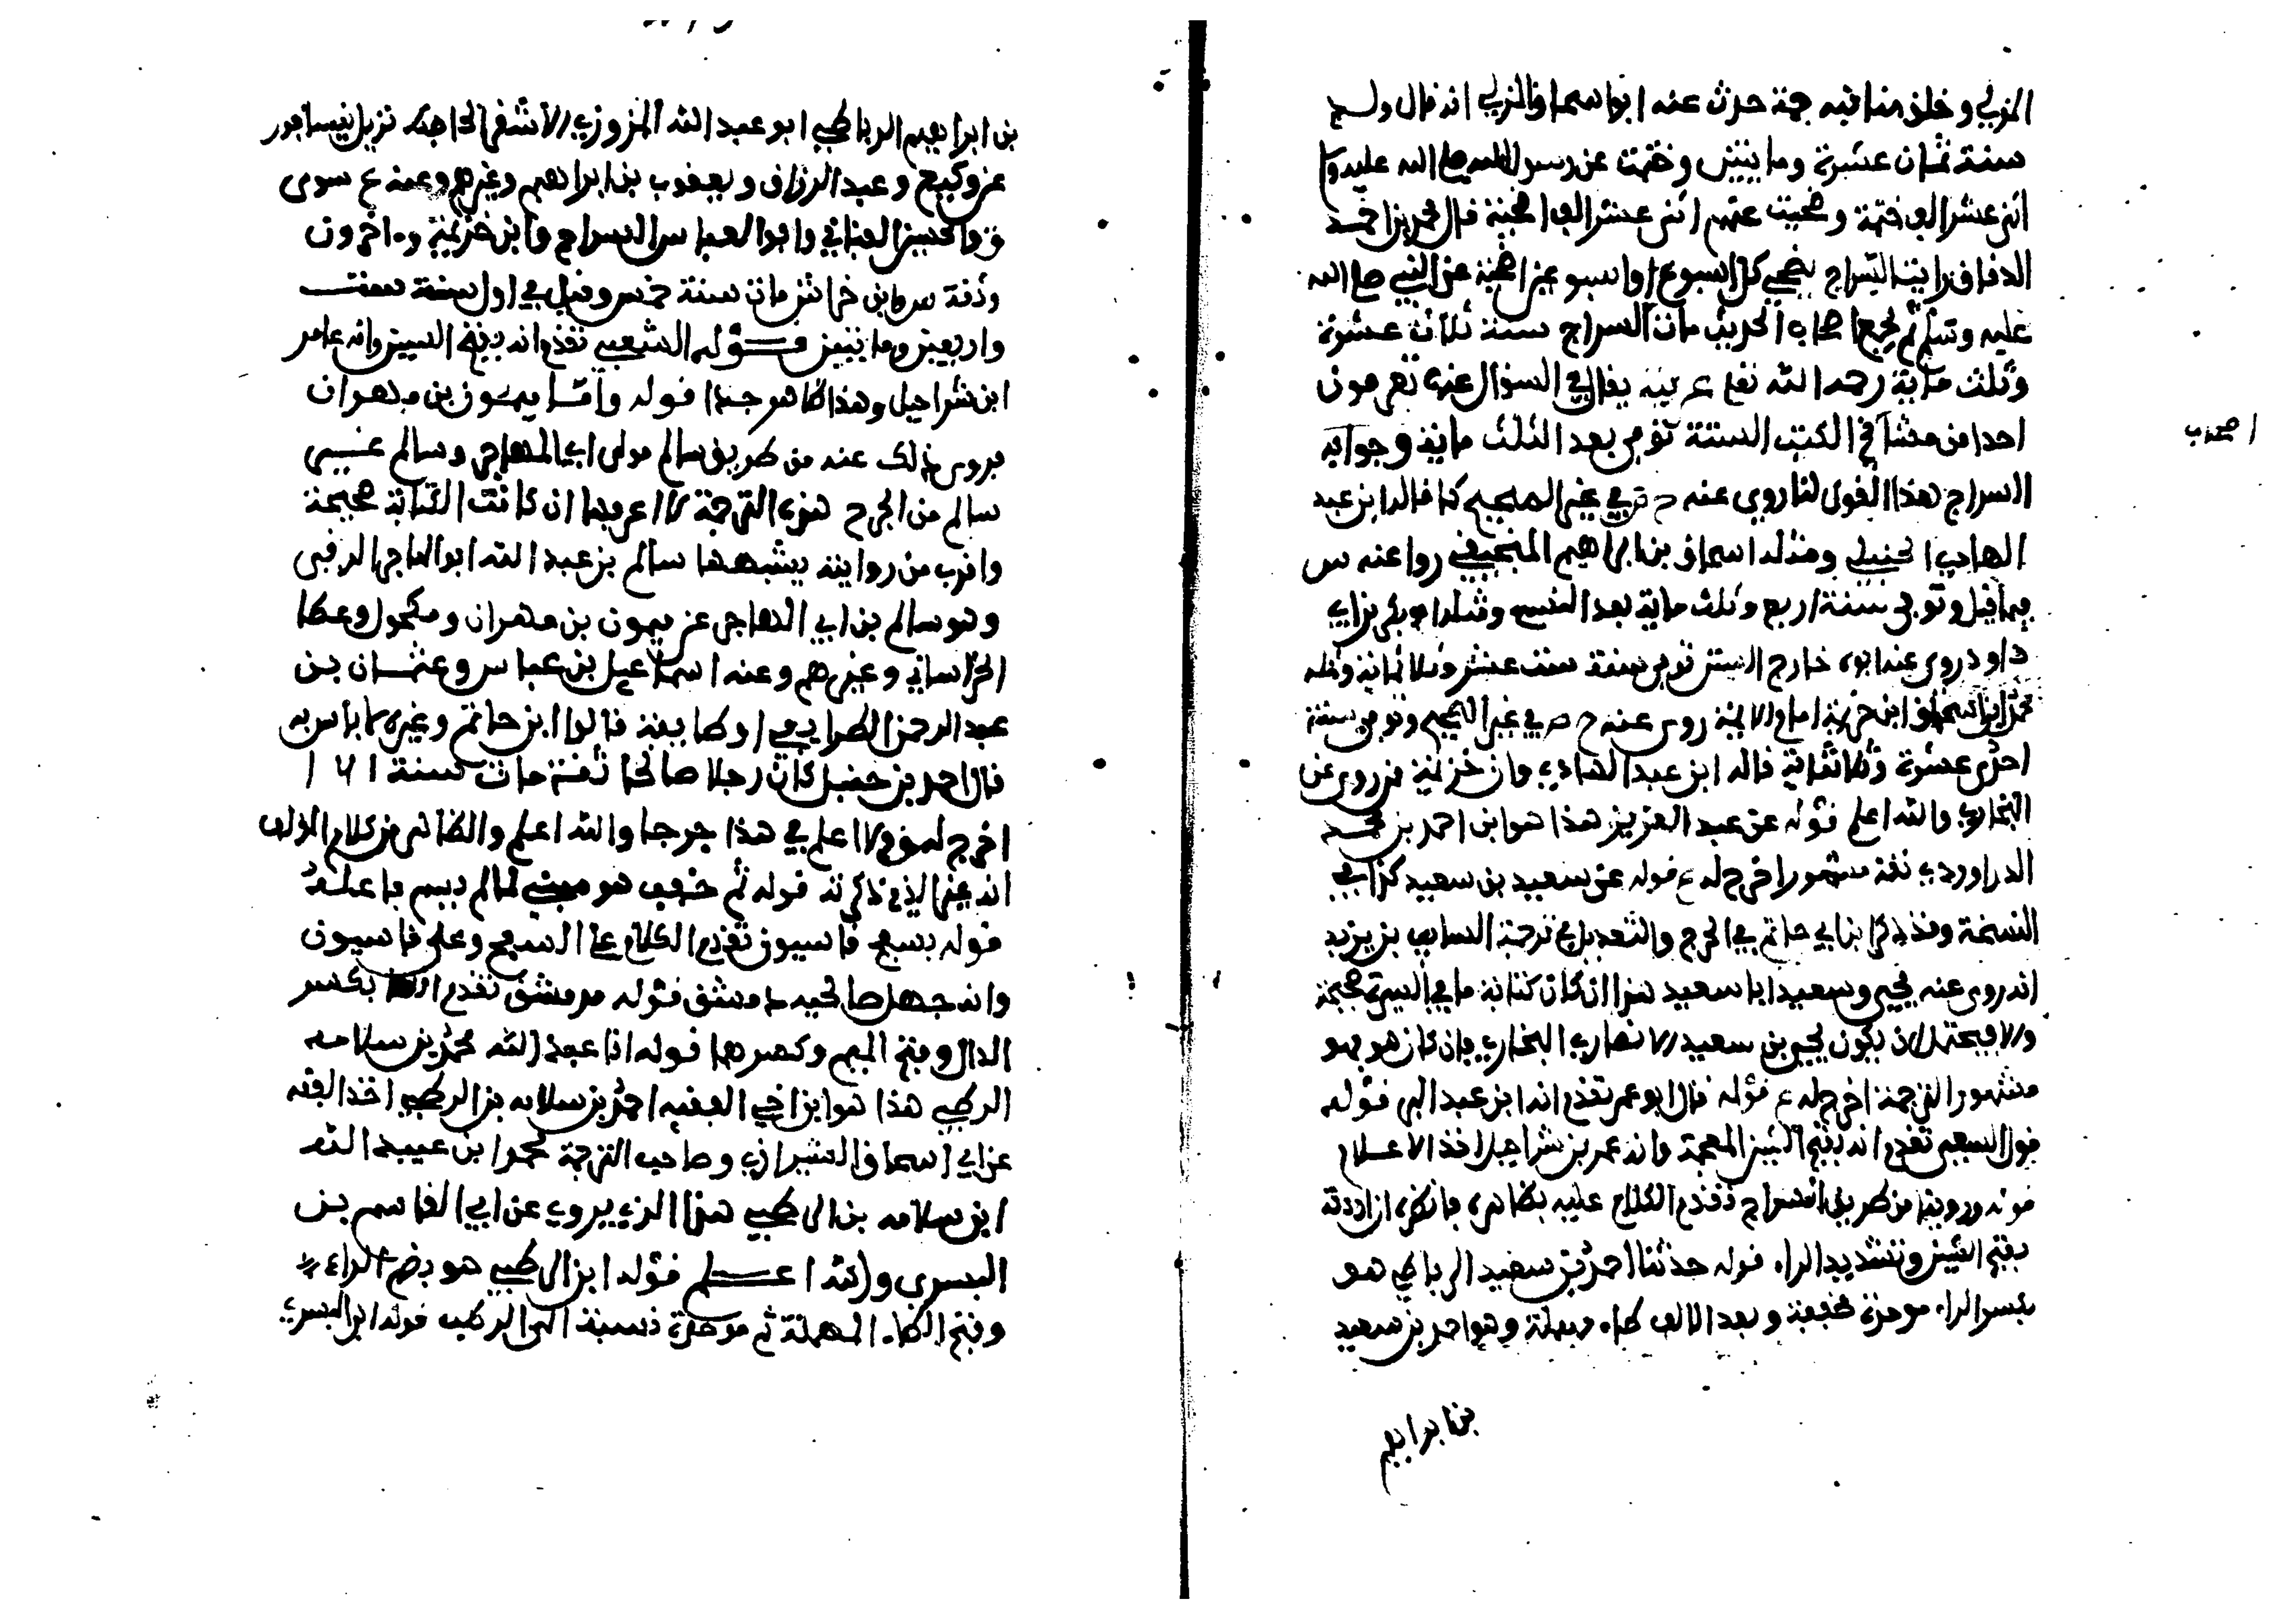 المزكي وخلق مناقبه جمة حدث عنه ابو اسحاق المزكي انه قال ولد
سنة ثمان عشرة ومايتين وختمت عن رسول الله صلى الله عليه و
اثنى عشر الف ختمة وضحيت عنه اثنى عشر الف اضحية قال محمد بن احمد
الدقاق رايت السراج يضحي كل اسبوع او اسبوعين اضحية عن النبي صلى الله
عليه وسلم ثم يجمع اصحاب الحديث مات السراج سنة ثلاث عشرة
وثلث ماية رحمه الله تعالى يقال في السؤال عنه تعرفون
احدا من مشايخ الكتب الستة توفى بعد الثلث ماية وجوابه
السراج هذا القوى لنا روى عنه خ م في غير الصحيح كذا قاله ابن عبد
الهادي الحنبلي ومثله اسحاق بن ابراهيم المنجنيقي روا عنه س
فيما قيل وتوفى سنة اربع وثلث ماية بعد النسي ومثله ابو بكر بن ابي
داود روى عنه ابوه خارج السنن توفى سنة ست عشر وثلاثماية ومثله
محمد بن اسحاق ابن خزيمة امام الايمة روى عنه خ م في غير الصحيح وتوفى سنة
احدى عشرة وثلاثماية قاله ابن عبد الهادي وابن خزيمة قد روى عن
البخاري والله اعلم قوله عن عبد العزيز هذا هو ابن احمد بن محمد
الدراوردي ثقة مشهور اخرج له ع قوله عن سعيد بن سعيد كذا في
النسخة وقد ذكر ابن ابي حاتم في الجرح والتعديل في ترجمة السايب بن يزيد
انه روى عنه يحيى وسعيد ابنا سعيد هذا ان كان كتابة ما في السيرة صحيحة
والا فيحتمل ان يكون يحيى بن سعيد الانصاري البخاري فان كان هو فهو
مشهور الترجمة اخرج له ع قوله قال ابو عمر تقدم انه ابن عبد البر قوله
قول الشعبي تقدم انه بفتح الشين المعجمة وانه عمر بن شراحيل احد الاعلام
قوله وروينا من طريق السراج تقدم الكلام عليه بظاهره فانظره ان اردته
بفتح السين وتشديد الراء قوله حدثنا احمد بن سعيد الرباطي هو
بكسر الراء موحدة مخففة وبعد الالف طاء مهملة وهو احمد بن سعيد
بن ابراهيم
اصحاب
بن ابراهيم الرباطي ابو عبد الله المروزي الاشقر الحافظ نزيل نيسابور
عن وكيع وعبد الرزاق ويعقوب بن ابراهيم وغيرهم وعنه ع سوى
ق والحسين القباني وابو العباس السراج وابن خزيمة وآخرون
وثقة س وابن خراش مات سنة خمس وقيل في اول سنة ست
واربعين ومايتين قوله الشعبي تقدم انه بفتح الشين وانه عامر
ابن شراحيل وهذا ظاهر جدا قوله واما ميمون بن مهران
فروى ذلك عنه من طريق سالم مولى ابي المهاجر وسالم غنيي
سالم من الجرح هذه الترجمة لا اعرفها ان كانت الكتابة صحيحة
واقرب من روايته يشبهها سالم بن عبد الله ابو المهاجر الرقى
وهو سالم بن ابي المهاجر عن ميمون بن مهران ومكحول وعطا
الخراساني وغيرهم وعنه اسماعيل بن عياس وعثمان بن
عبد الرحمن الطرايفي وطايفة قال ابن حاتم وغيره لا باس به
قال احمد بن حنبل كان رجلا صالحا ثقة مات سنة ١٦١
اخرج له ق ولا اعلم في هذا جرحا والله اعلم والظاهر من كلام المؤلف
انه غير الذي ذكرته قوله ثم خفيف هو مبني لما لم يسم فاعله
قوله بسفح قاسيون تقدم الكلام على السفح وعلى قاسيون
وانه جبل صالحية دمشق قوله بدمشق تقدم انها بكسر
الدال وفتح الميم وكسرها قوله انا عبد الله محمد بن سلامه
الرطبي هذا هو ابن اخي الفقيه احمد بن سلامه بن الرطبي اخذ الفقه
عن ابي اسحاق الشيرازي وصاحب الترجمة محمد ابن عبيد الله
ابن سلامه بن الرطبي هذا الذي يروي عن ابي القاسم بن
البسرى والله اعلم قوله ابن الرطبي هو بضم الراء
وفتح الطاء المهملة ثم موحدة نسبة الى الرطب قوله ابن البسرى